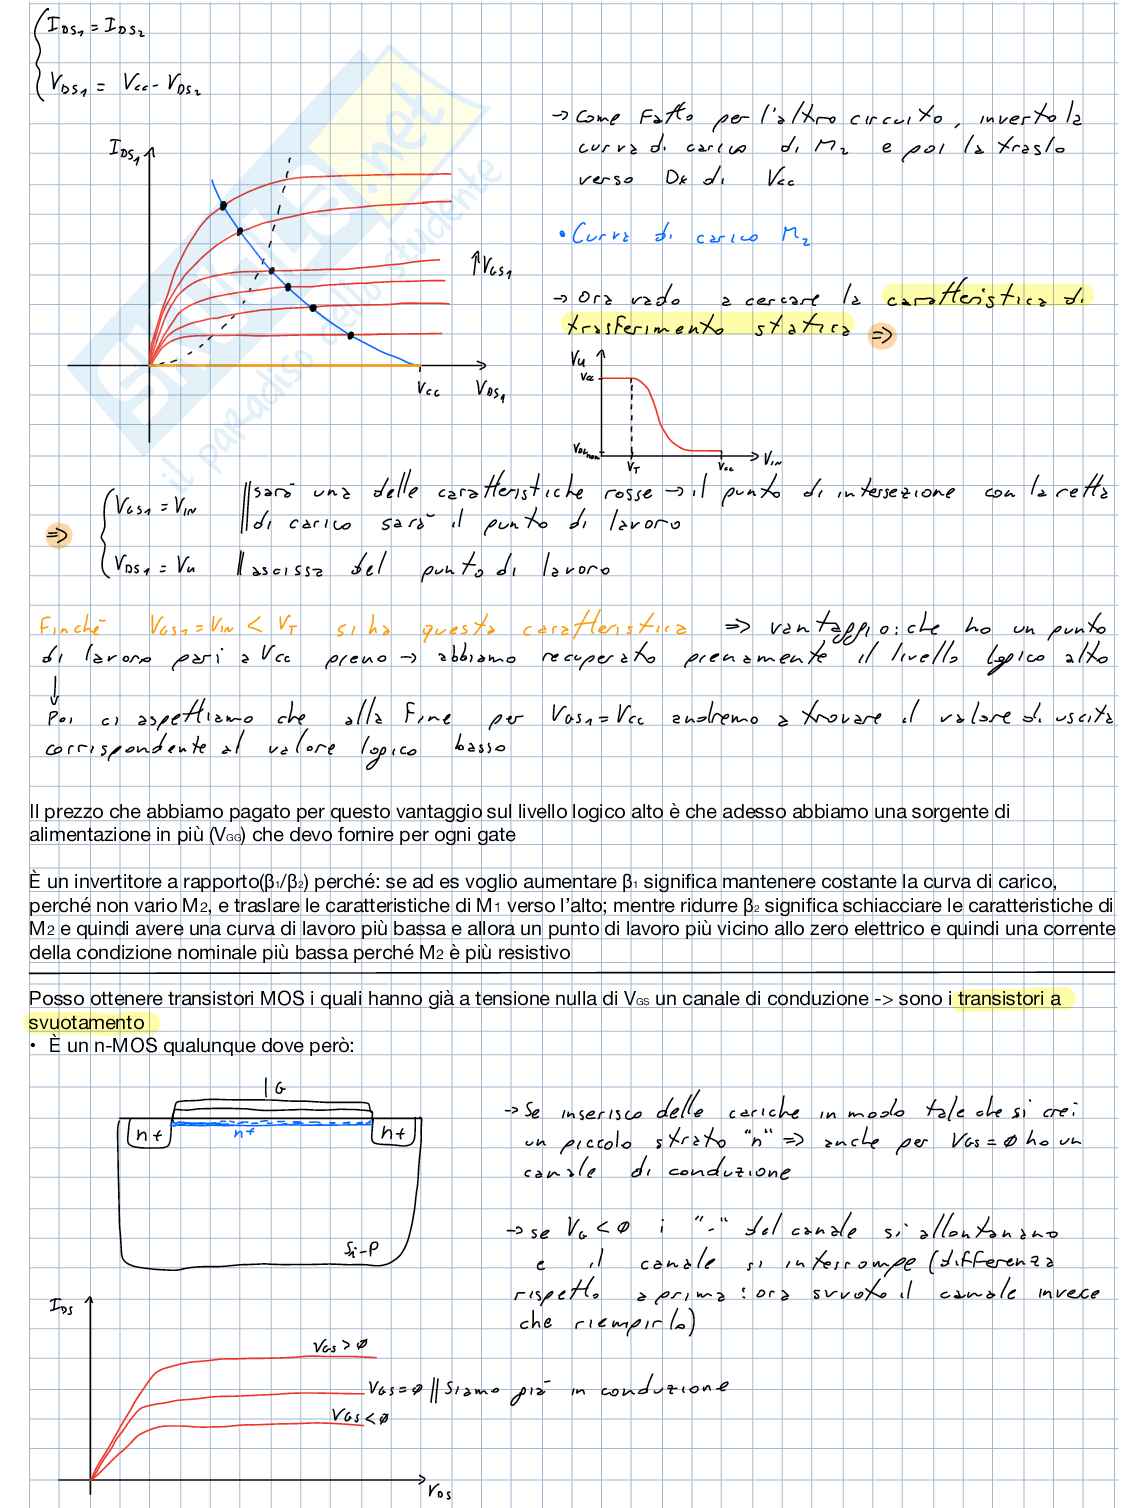 I_DS1 = I_DS2
V_DS1 = V_CC - V_DS2
-> Come Fatto per l'altro circuito, inverto la
curva di carico di M2 e poi la traslo
verso Dx di Vcc
• Curva di carico M2
I_DS1
↑V_GS1
Vcc
V_DS1
-> Ora vado a cercare la caratteristica di
trasferimento statica =>
Vu
Vcc
V_T
Vcc
V_IN
=> V_GS1 = V_IN || sarà una delle caratteristiche rosse -> il punto di intersezione con la retta
di carico sarà il punto di lavoro
V_DS1 = Vu || ascissa del punto di lavoro
Finché V_GS1 = V_IN < V_T si ha questa caratteristica => vantaggio: che ho un punto
di lavoro pari a Vcc pieno -> abbiamo recuperato pienamente il livello logico alto
↓
Poi ci aspettiamo che alla Fine per V_GS1 = Vcc andremo a trovare il valore di uscita
corrispondente al valore logico basso
Il prezzo che abbiamo pagato per questo vantaggio sul livello logico alto è che adesso abbiamo una sorgente di
alimentazione in più (VGG) che devo fornire per ogni gate
È un invertitore a rapporto(β1/β2) perché: se ad es voglio aumentare β1 significa mantenere costante la curva di carico,
perché non vario M2, e traslare le caratteristiche di M1 verso l'alto; mentre ridurre β2 significa schiacciare le caratteristiche di
M2 e quindi avere una curva di lavoro più bassa e allora un punto di lavoro più vicino allo zero elettrico e quindi una corrente
della condizione nominale più bassa perché M2 è più resistivo
Posso ottenere transistori MOS i quali hanno già a tensione nulla di VGS un canale di conduzione -> sono i transistori a
svuotamento
• È un n-MOS qualunque dove però:
G
n+
n+
n+
Si-P
-> Se inserisco delle cariche in modo tale che si crei
un piccolo strato "n" => anche per V_GS = ∅ ho un
canale di conduzione
-> se V_G < ∅ i "-" del canale si allontanano
e il canale si interrompe (differenza
rispetto a prima: ora svuoto il canale invece
che riempirlo)
I_DS
V_GS > ∅
V_GS = ∅ || Siamo già in conduzione
V_GS < ∅
V_DS
skuola.net
il paradiso dello studente